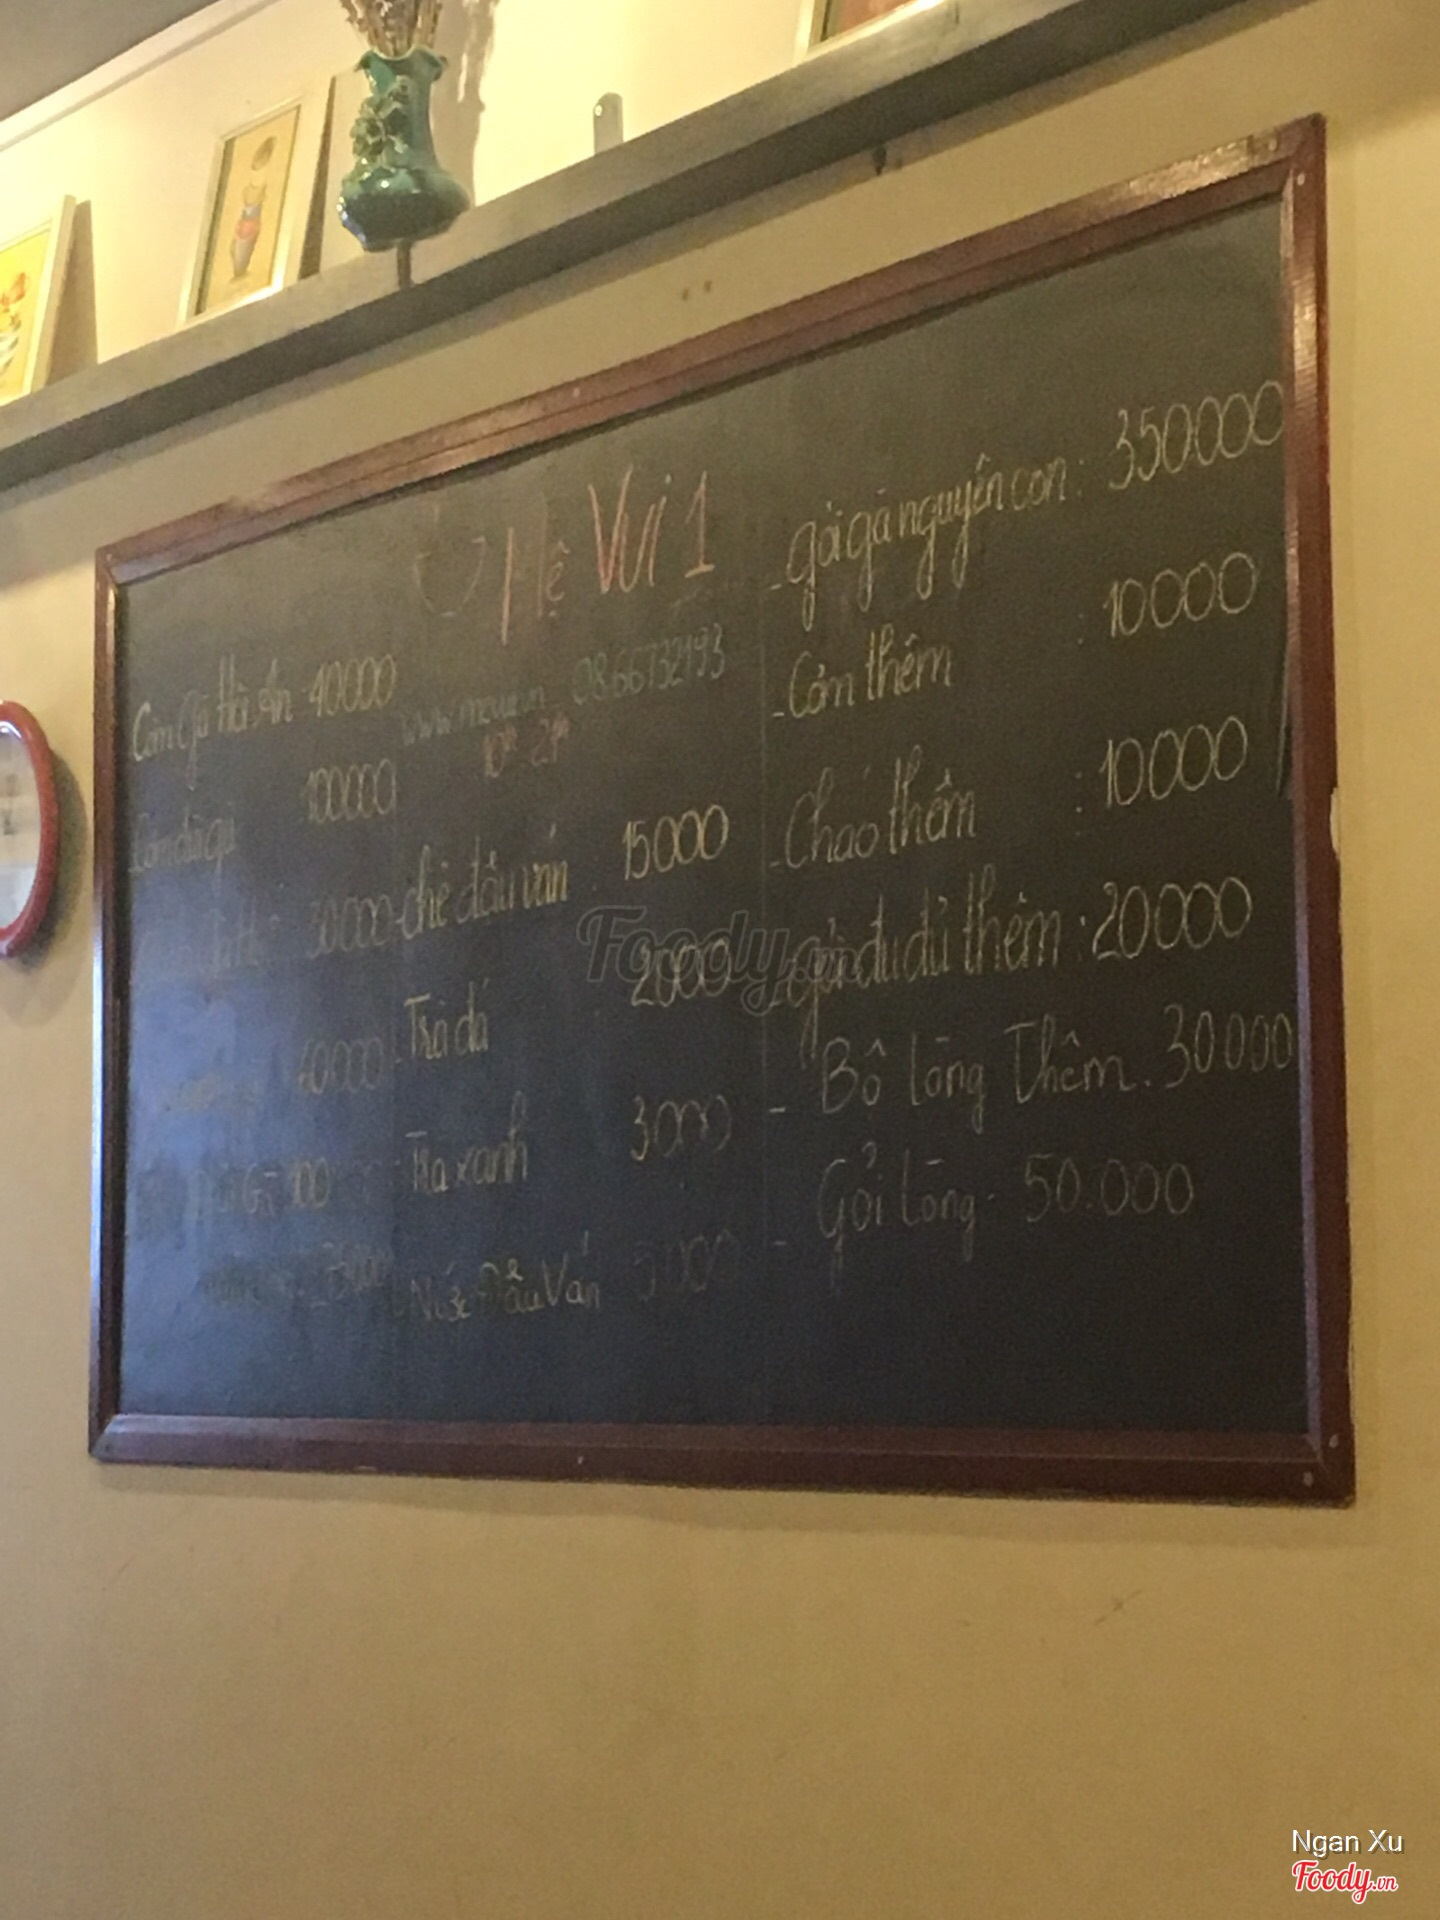 Mẹ Vui 1
www.mevui.vn 0866732193
10h 21h
Cơm gà Hội An 40000
Cơm đùi gà 100000
30000
60000
100
35000
- chè đậu ván : 15000
- Trà đá 2000
- Trà xanh 3000
Đậu Ván 5000
- gỏi gà nguyên con : 350000
- Cơm thêm : 10000
- Cháo thêm : 10000
- gỏi đu đủ thêm : 20000
- Bộ lòng Thêm. 30000
- Gỏi lòng - 50.000
Foody.vn
Ngan Xu
Foody.vn